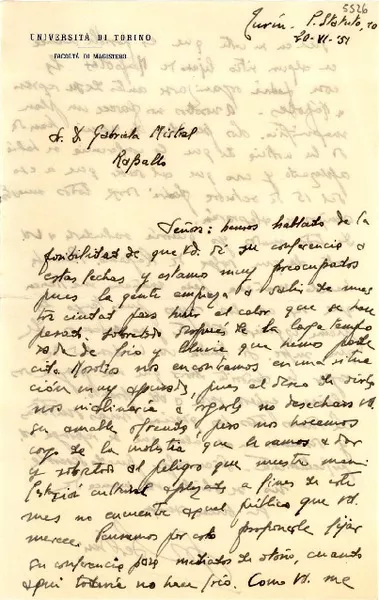 5526
UNIVERSITÀ DI TORINO
FACOLTÀ DI MAGISTERO
Turín - P. Statuto, 10
20-VI-'51
S. D. Gabriela Mistral
Rapallo
Señora: hemos hablado de la
posibilidad de que Vd. dé su conferencia a
estas fechas y estamos muy preocupados
pues la gente empieza a salir de nues
tra ciudad para huir al calor que se hace
pesado, sobretodo después de la larga tempo
rada de frío y lluvia que hemos pade
cido. Nosotros nos encontramos en una situa
ción muy apurada, pues el deseo de oirla
nos inclinaría a rogarle no desechara Vd.
su amable ofrecido, pero nos hacemos
cargo de la molestia que le vamos a dar
y sobretodo al peligro que nuestra mani
festación cultural aplazada a fines de este
mes no encuentre aquel público que Vd.
merece. Pensamos por esto proponerle fijar
su conferencia para mediados de otoño, cuando
aquí todavía no hace frío. Como Vd. me